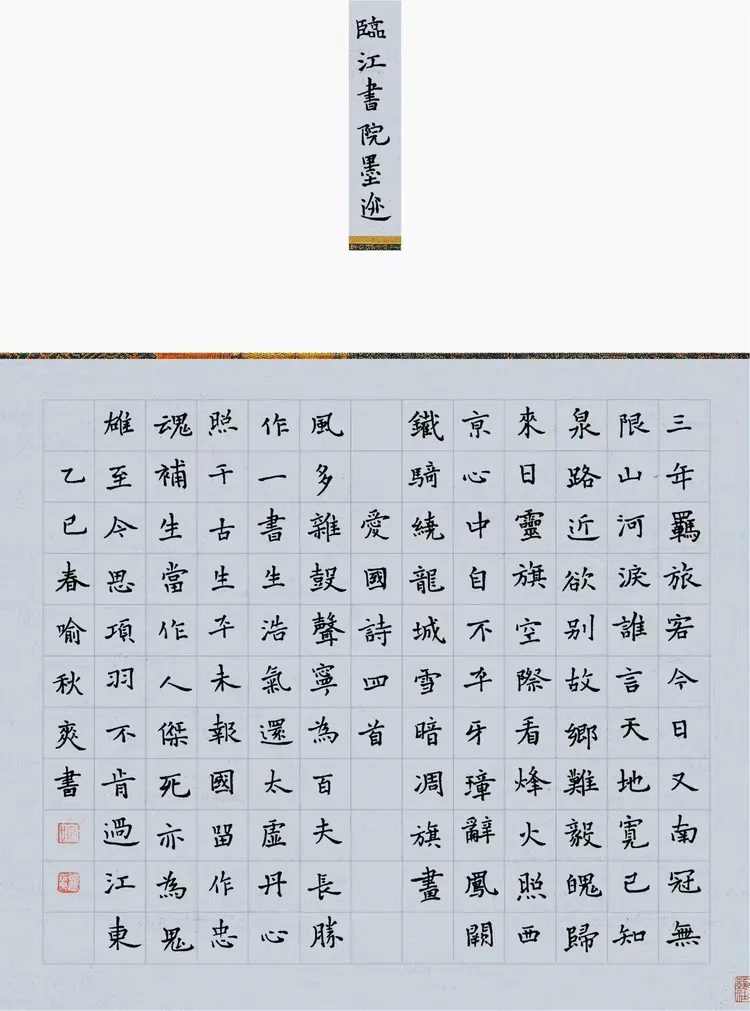 臨江書院墨迹
三年羈旅客今日又南冠無
限山河淚誰言天地寬已知
泉路近欲别故鄉難毅魄歸
來日靈旗空際看烽火照西
亰心中自不平牙璋辭鳳闕
鐵騎繞龍城雪暗凋旗畫
愛國詩四首
風多雜鼓聲寧為百夫長勝
作一書生浩氣還太虛丹心
照千古生平未報國留作忠
魂補生當作人傑死亦為鬼
雄至今思項羽不肯過江東
乙巳春喻秋爽書